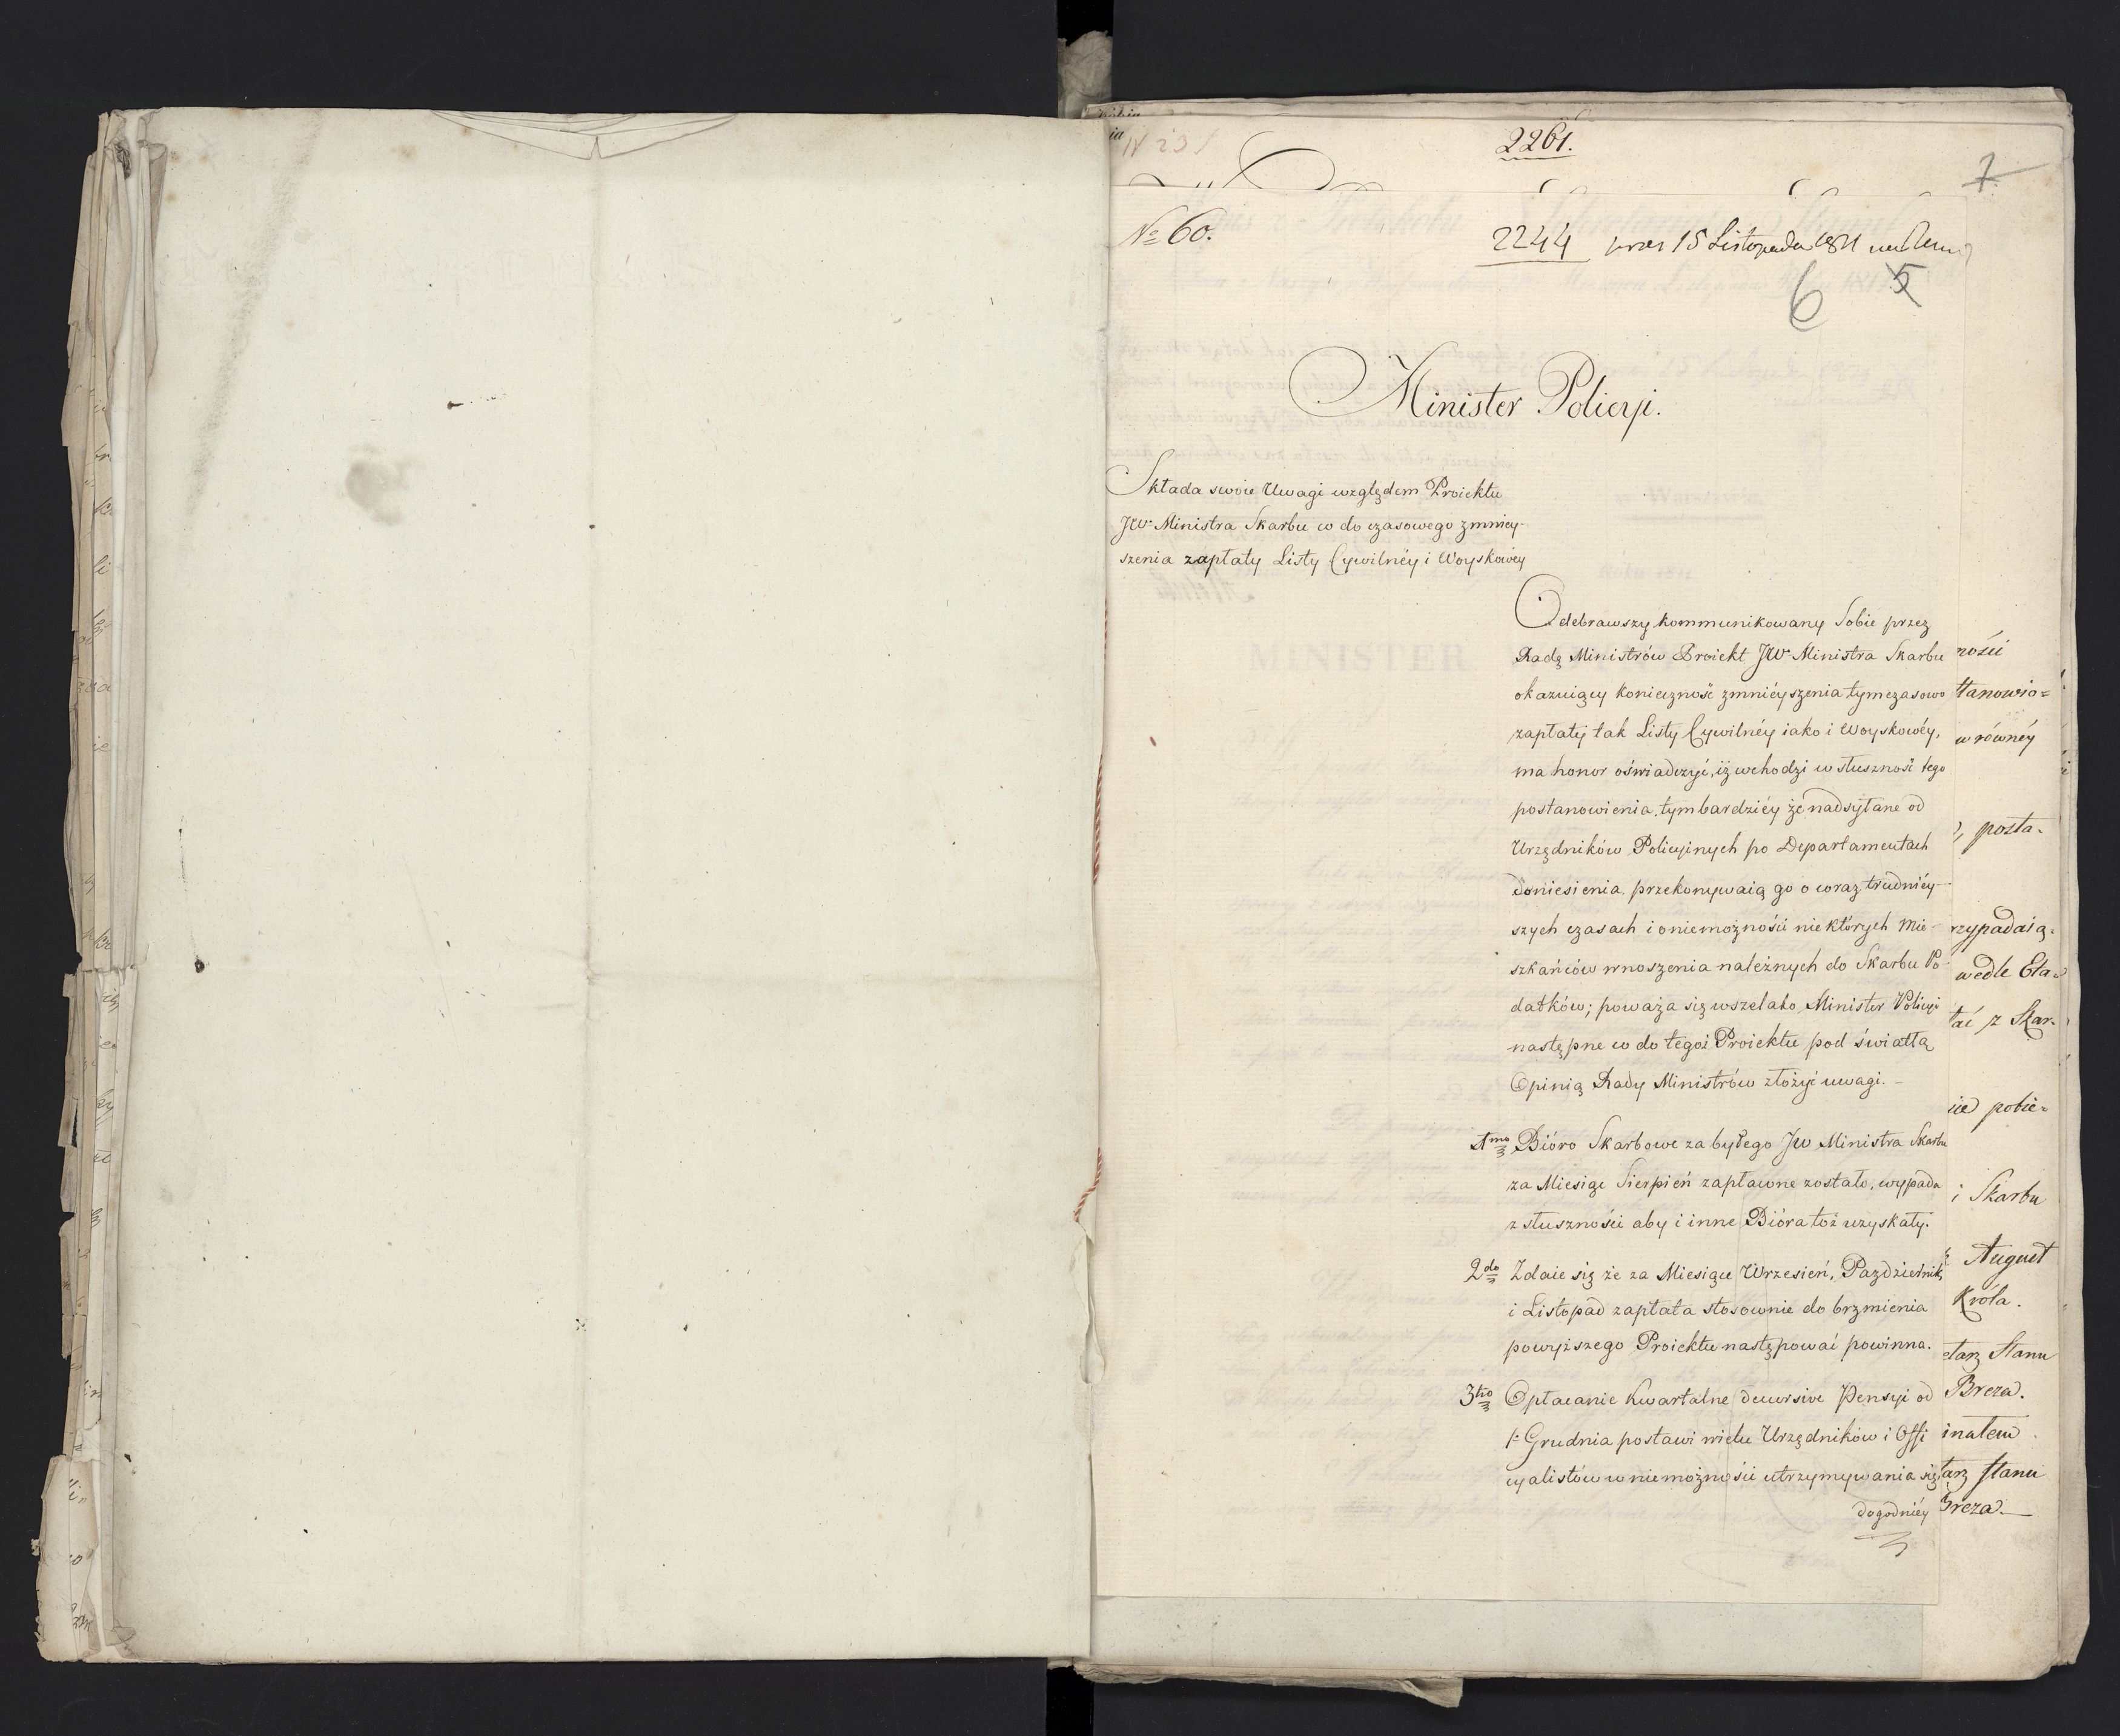 2261.
7
№ 60.
2244 prez 15 Listopada 1811
6 5
Minister Policyi.
Składa swoie Uwagi względem Proiektu
JW. Ministra Skarbu co do czasowego zmniey-
szenia zapłaty Listy Cywilnéy i Woyskowéy
Odebrawszy kommunikowany Sobie przez
Radę Ministrów Proiekt JW. Ministra Skarbu
okazuiący konieczność zmniéyszenia tymczasowo
zapłaty tak Listy Cywilnéy iako i Woyskowéy,
ma honor oświadczyć, iż wchodzi w słuszność tego
postanowienia, tymbardziéy że nadsyłane od
Urzędników Policyinych po Departamentach
doniesienia, przekonywaią go o coraz trudniéy-
szych czasach i o niemożności niektórych Mie-
szkańców wnoszenia należnych do Skarbu Po-
datków; poważa się wszelako Minister Policyi
następne co do tegoż Proiektu pod światłą
Opinią Rady Ministrów złożyć uwagi. –
1mo Bióro Skarbowe za byłego JW Ministra Skarbu
za Miesiąc Sierpień zapłacone zostało, wypada
z słuszności aby i inne Bióra toż uzyskały.
2do Zdaie się że za Miesiące Wrzesień, Pazdziernik
i Listopad zapłata stosownie do brzmienia
powyższego Proiektu następować powinna.
3tio Opłacanie Kwartalne decursive Pensyi od
1. Grudnia postawi wielu Urzędników i Offi
cyalistów w niemożności utrzymywania się,
dogodniéy
ności
tanowio=
w równéy
posta-
rzypadaią-
wedle Eta=
tać z Skar-
pobie=
i Skarbu
August
Króla.
etarz Stanu
Breza.
inałem
tarz Stanu
Breza.